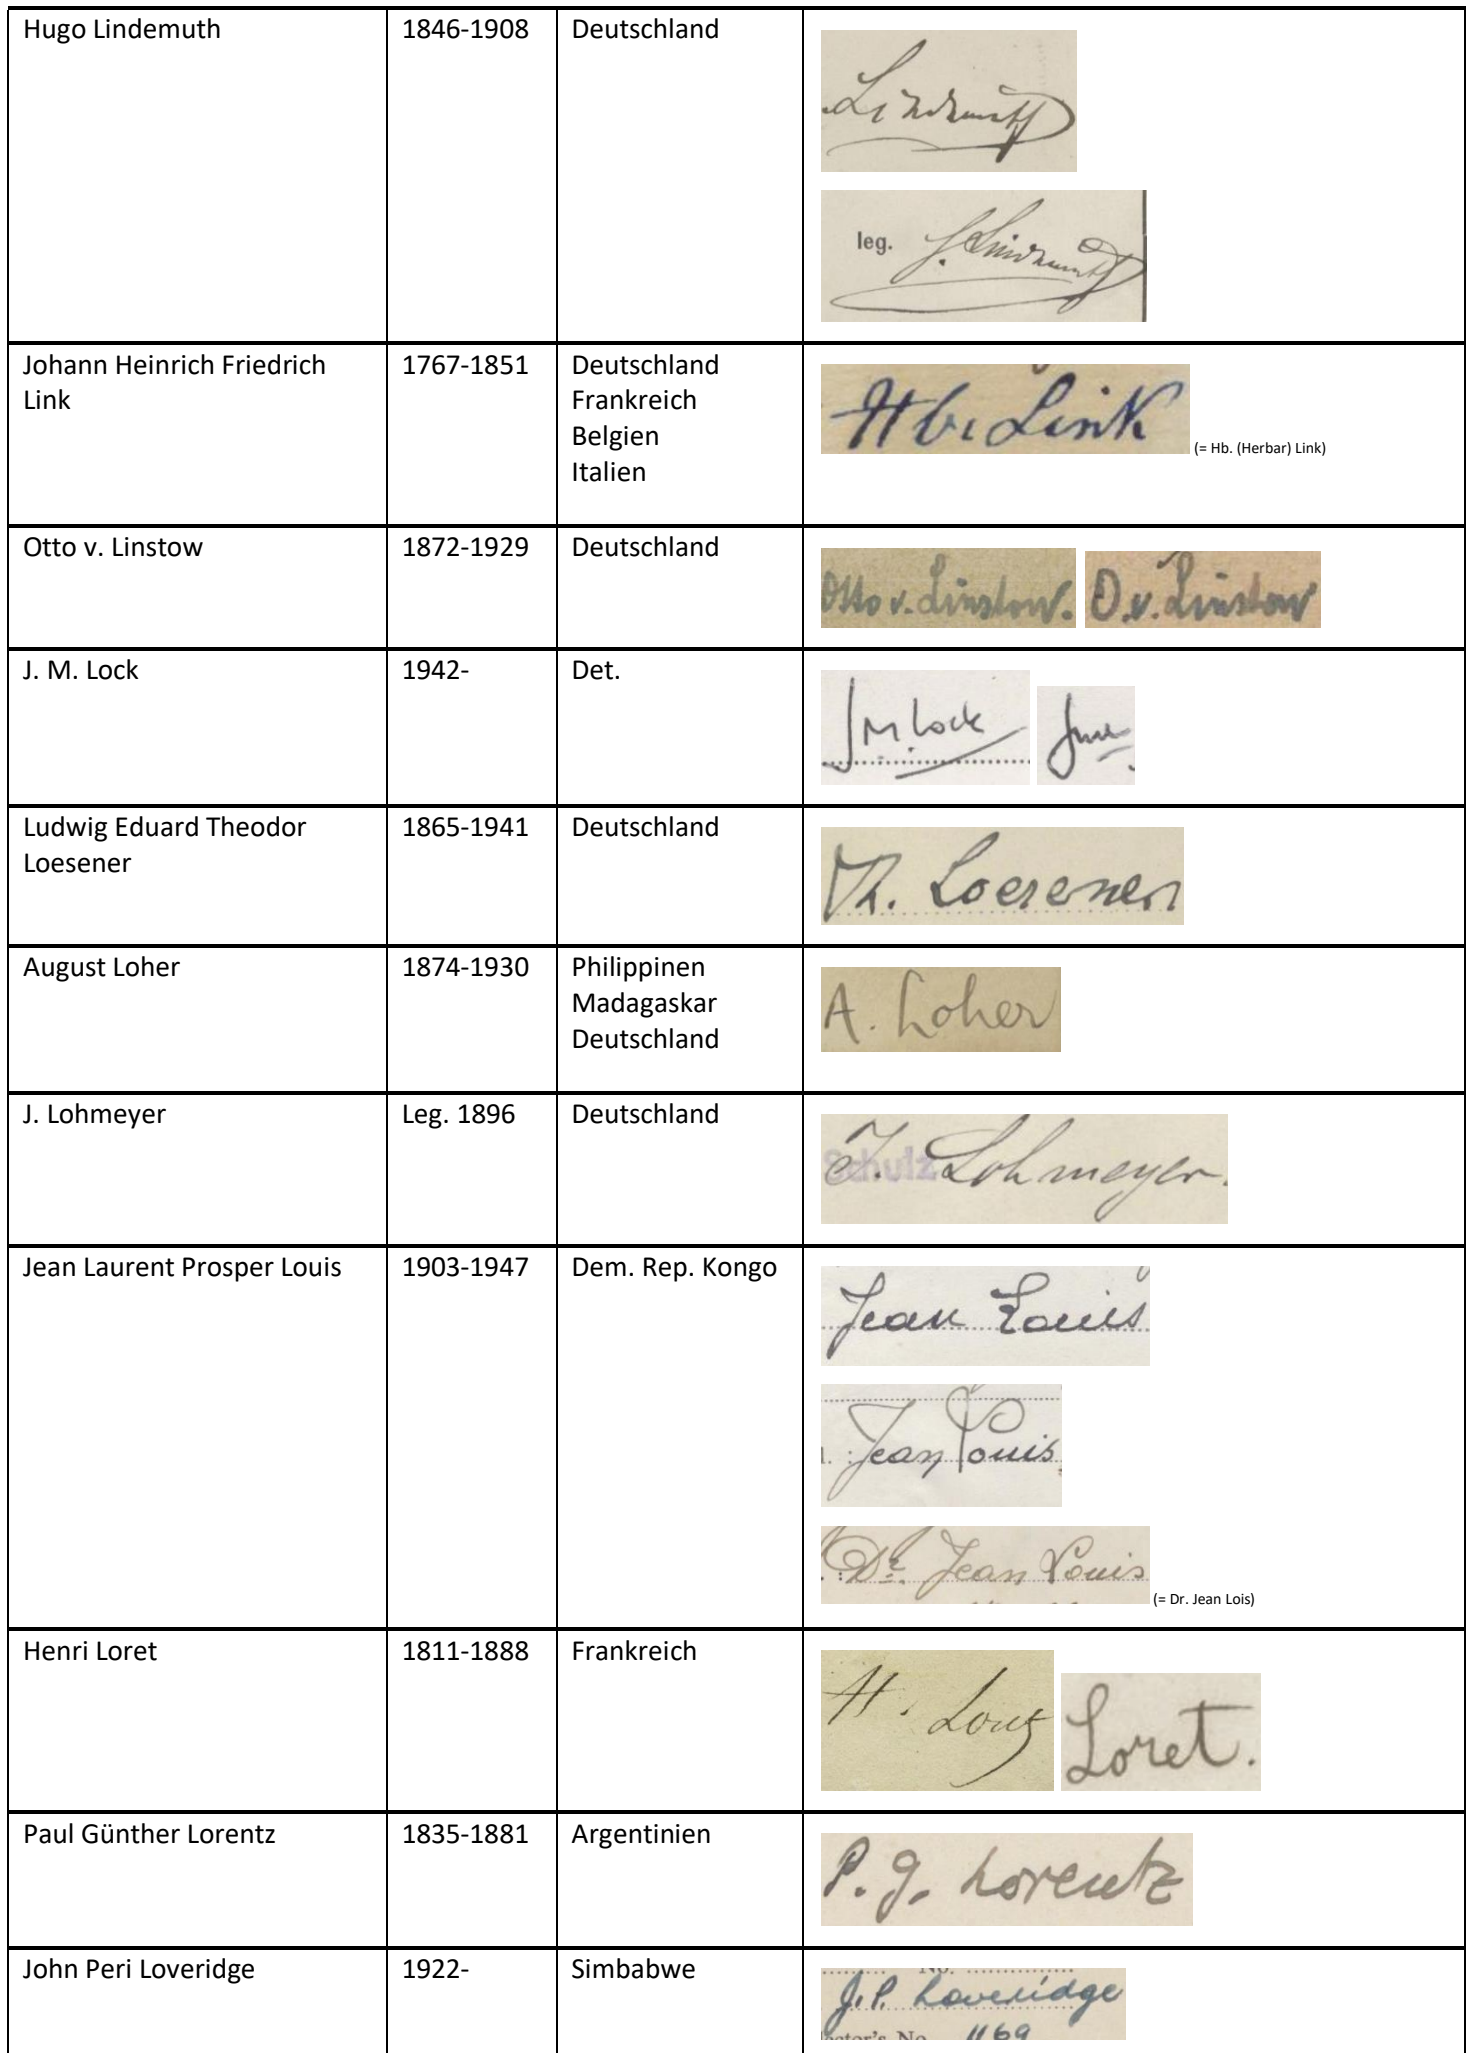 Hugo Lindemuth
1846-1908
Deutschland
Lindemuth
leg. H. Lindemuth
Johann Heinrich Friedrich
Link
1767-1851
Deutschland
Frankreich
Belgien
Italien
Hb. Link
(= Hb. (Herbar) Link)
Otto v. Linstow
1872-1929
Deutschland
Otto v. Linstow.
O. v. Linstow
J. M. Lock
1942-
Det.
JM Lock
Ludwig Eduard Theodor
Loesener
1865-1941
Deutschland
Th. Loesener
August Loher
1874-1930
Philippinen
Madagaskar
Deutschland
A. Loher
J. Lohmeyer
Leg. 1896
Deutschland
Schulz
J. Lohmeyer.
Jean Laurent Prosper Louis
1903-1947
Dem. Rep. Kongo
Jean Louis
Jean Louis
Dr. Jean Louis
(= Dr. Jean Lois)
Henri Loret
1811-1888
Frankreich
H. Loret
Loret.
Paul Günther Lorentz
1835-1881
Argentinien
P. G. Lorentz
John Peri Loveridge
1922-
Simbabwe
No.
J.P. Loveridge
lector's No. 1169